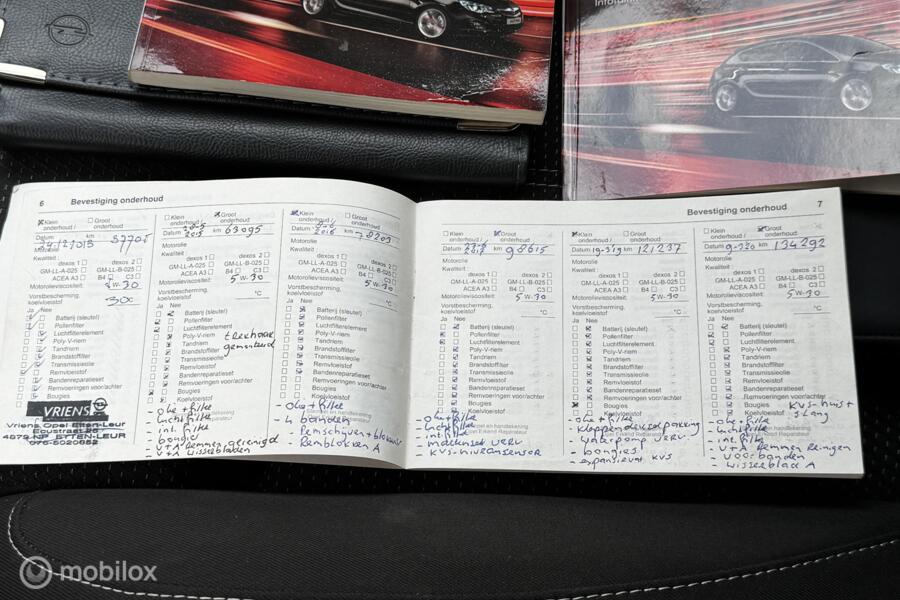 6 Bevestiging onderhoud
Klein onderhoud / Groot onderhoud
Datum 24.12.1013 km 37705
Motorolie
Kwaliteit:
dexos 1 dexos 2
GM-LL-A-025 GM-LL-B-025
ACEA A3 B4 C3
Motorolieviscositeit: 5W-30
Vorstbescherming,
koelvloeistof 30 °C
Ja Nee
Batterij (sleutel)
Pollenfilter
Luchtfilterelement
Poly-V-riem
Tandriem
Brandstoffilter
Transmissieolie
Remvloeistof
Bandenreparatieset
Remvoeringen voor/achter
Bougies
VRIENS
Vriens Opel Etten-Leur
4879 NP ETTEN-LEUR
Klein onderhoud / Groot onderhoud
Datum 2015 km 63095
Motorolie
Kwaliteit:
dexos 1 dexos 2
GM-LL-A-025 GM-LL-B-025
ACEA A3 B4 C3
Motorolieviscositeit: 5W-30
Vorstbescherming,
koelvloeistof °C
Ja Nee
Batterij (sleutel)
Pollenfilter
Luchtfilterelement
Poly-V-riem trekhaak
Tandriem gemonteerd
Brandstoffilter
Transmissieolie
Remvloeistof
Bandenreparatieset
Remvoeringen voor/achter
Bougies
Koelvloeistof
- olie + filter
- luchtfilter
- int. filter
- bougies
- V+A remmen gereinigd
- V+A wisserbladen
Klein onderhoud / Groot onderhoud
Datum 2016 km 78203
Motorolie
Kwaliteit:
dexos 1 dexos 2
GM-LL-A-025 GM-LL-B-025
ACEA A3 B4 C3
Motorolieviscositeit: 5W-30
Vorstbescherming,
koelvloeistof °C
Ja Nee
Batterij (sleutel)
Pollenfilter
Luchtfilterelement
Poly-V-riem
Tandriem
Brandstoffilter
Transmissieolie
Remvloeistof
Bandenreparatieset
Remvoeringen voor/achter
Bougies
Koelvloeistof
- olie + filter
- 4 banden
- Remschijven + blokken
- Remblokken A
Bevestiging onderhoud 7
Klein onderhoud / Groot onderhoud
Datum 2017 km 98615
Motorolie
Kwaliteit:
dexos 1 dexos 2
GM-LL-A-025 GM-LL-B-025
ACEA A3 B4 C3
Motorolieviscositeit: 5W-30
Vorstbescherming,
koelvloeistof °C
Ja Nee
Batterij (sleutel)
Pollenfilter
Luchtfilterelement
Poly-V-riem
Tandriem
Brandstoffilter
Transmissieolie
Remvloeistof
Bandenreparatieset
Remvoeringen voor/achter
Bougies
Koelvloeistof
- olie + filter
- luchtfilter
- int. filter
Klein onderhoud / Groot onderhoud
Datum 19-3/19 km 121237
Motorolie
Kwaliteit:
dexos 1 dexos 2
GM-LL-A-025 GM-LL-B-025
ACEA A3 B4 C3
Motorolieviscositeit: 5W-30
Vorstbescherming,
koelvloeistof °C
Ja Nee
Batterij (sleutel)
Pollenfilter
Luchtfilterelement
Poly-V-riem
Tandriem
Brandstoffilter
Transmissieolie
Remvloeistof
Bandenreparatieset
Remvoeringen voor/achter
Bougies
Koelvloeistof
- olie + filter
- kleppendekselpakking
- waterpomp verv
- bougies
- expansievat kvs
Klein onderhoud / Groot onderhoud
Datum 9-3/20 km 134292
Motorolie
Kwaliteit:
dexos 1 dexos 2
GM-LL-A-025 GM-LL-B-025
ACEA A3 B4 C3
Motorolieviscositeit: 5W-30
Vorstbescherming,
koelvloeistof °C
Ja Nee
Batterij (sleutel)
Pollenfilter
Luchtfilterelement
Poly-V-riem
Tandriem
Brandstoffilter
Transmissieolie
Remvloeistof
Bandenreparatieset
Remvoeringen voor/achter
Bougies kvs-huis +
Koelvloeistof slang
- olie + filter
- luchtfilter
- int. filter
- V+A remmen reinigen
- voorbanden
- wisserblad A
mobilox